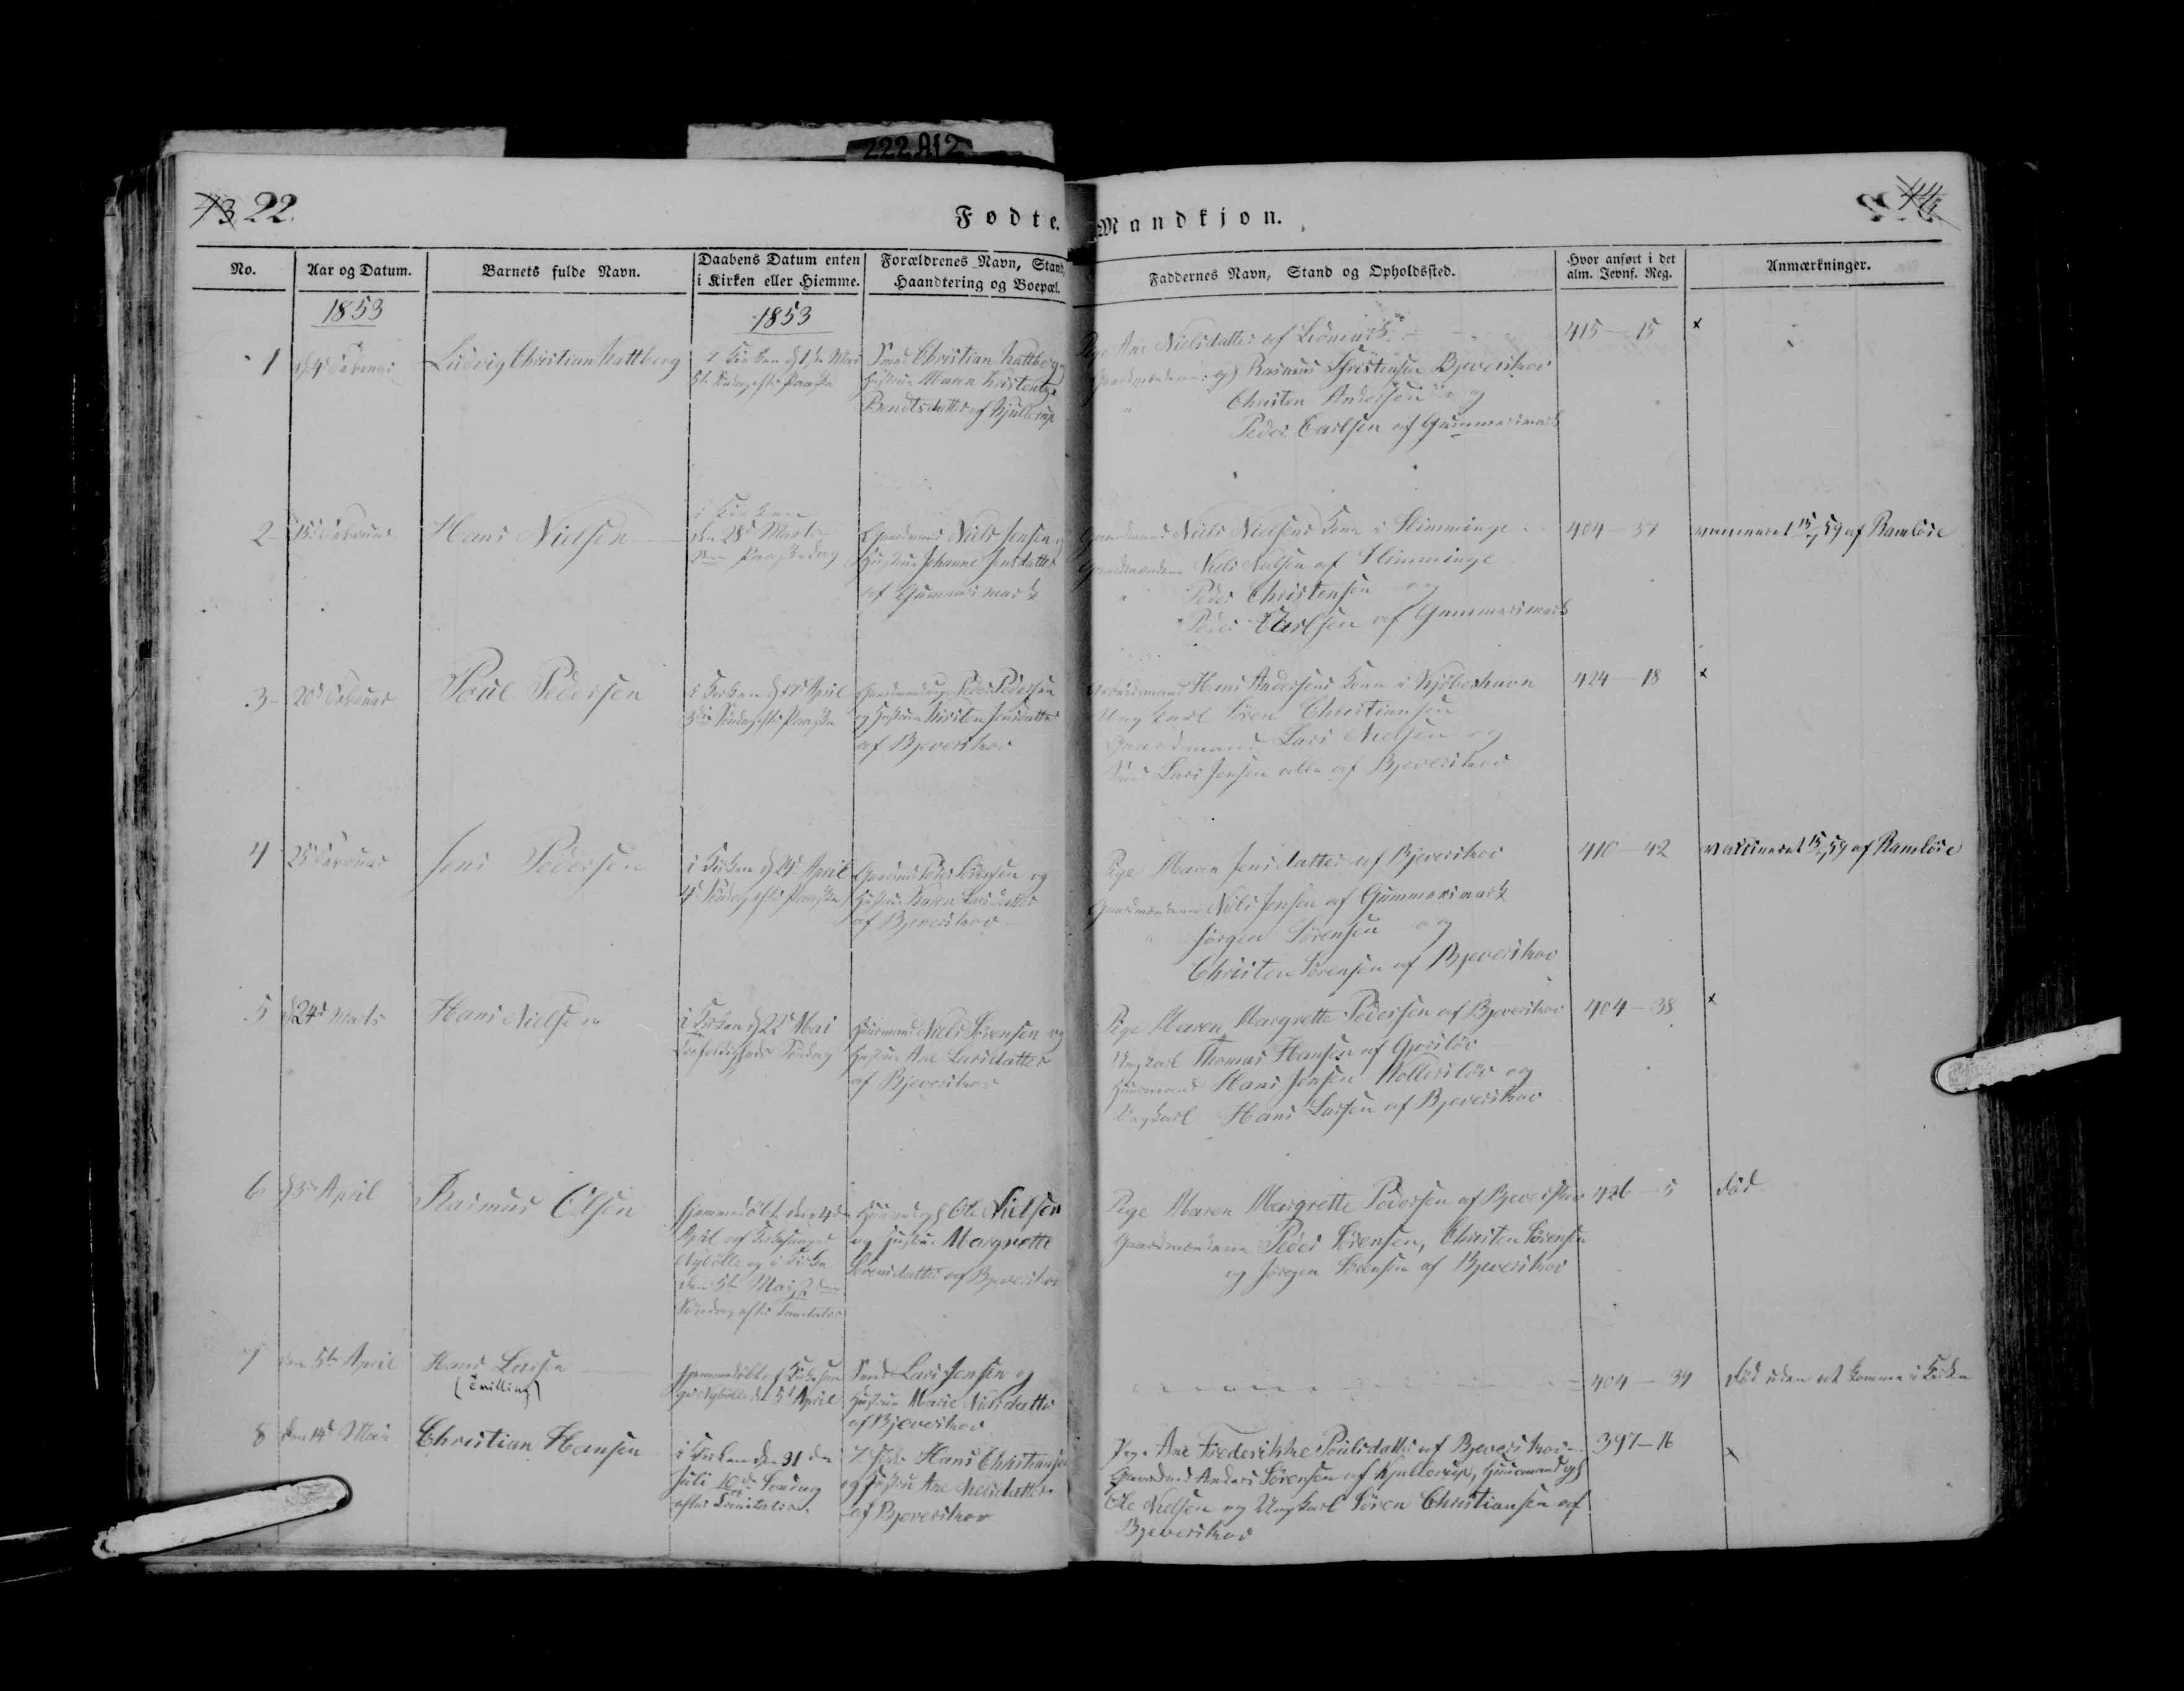 222 A12
43 22.
44
Fødte Mandkjøn.
No.
Aar og Datum.
Barnets fulde Navn.
Daabens Datum enten i Kirken eller Hiemme.
Forældrenes Navn, Stand, Haandtering og Boepæl.
Faddernes Navn, Stand og Opholdssted.
Hvor anført i det alm. Jevnf. Reg.
Anmærkninger.
1853
1853
1
Ludvig Christian Kattberg
Smed Christian Kattberg
Hustru Maren Kirstentze
Bendtsdatter af Kjullerup
Pige Ane Nielsdatter af
Rasmus Christensen Bjeverskov
Christen Andersen og
Peder Carlsen af Gummersmark
415 — 15
x
2
Hans Nielsen
i Kirken
den 28d Marts
Paaskedag
Gaardmand Niels Jensen og
Hustrue Johanne Jensdatter
af Gummersmark
Gaardmand Niels Nielsens Kone i Slimminge
Gaardmændene Niels Nielsen af Slimminge
" Peder Christensen og
Peder Carlsen af Gummersmark
404 — 37
vaccineret 15/ 59 af Ramløse
3
20d Februar
Poul Pedersen
i Kirken d 17d April
3die Søndag efter Paaske
Peder Pedersen
og Hustrue Kirsten Jensdatter
af Bjeverskov
Hans Andersens Kone i Kjøbenhavn
Ungkarl Søren Christiansen
Gaardmand Lars Nielsen og
Smed Lars Jensen alle af Bjeverskov
424 — 18
x
4
25 Februar
Jens Pedersen
i Kirken d 24d April
4d Søndag efter Paaske
Gaardmd Peder Sørensen og
Hustrue Karen Larsdatter
af Bjeverskov
Pige Maren Jensdatter af Bjeverskov
Gaardmændene Niels Jensen af Gummersmark
" Jørgen Sørensen og
Christen Sørensen af Bjeverskov
410 — 42
vaccineret 15/ 59 af Ramløse
5
d 24d Marts
Hans Nielsen
i Kirken d 22d Mai
Trefoldigheds Søndag
Huusmand Niels Sørensen og
Hustrue Ane Larsdatter
af Bjeverskov
Pige Maren Margrette Pedersen af Bjeverskov
Ungkarl Thomas Hansen af Gjørsløv
Huusmand Hans Jensen Vollersløv og
Ungkarl Hans Larsen af Bjeverskov
404 — 38
x
6
d 3d April
Rasmus Olsen
Hjemmedøbt den 4de
April af Kirkesanger
Nybølle og i Kirken
Søndag efter Trinitatis
Ole Nielsen
og Hustru Margrette
Sørensdatter af Bjeverskov
Pige Maren Margrette Pedersen af Bjeverskov
Gaardmændene Peder Sørensen, Christen Sørensen
og Jørgen Sørensen af Bjeverskov
426 — 5
død
7
den 5te April
Hans Larsen
(Tvilling)
Hjemmedøbt af Kirkesan
ger Nybølle d 5d April
Smed Lars Jensen og
Hustrue Marie Nielsdatter
af Bjeverskov
404 — 39
død uden at komme i Kirke
8
den 14d Mai
Christian Hansen
i Kirken den 31 den
Juli 10de Søndag
efter Trinitatis.
Hans Christiansen
og Hustru Ane Nielsdatter
af Bjeverskov
Pige Ane Frederikke Poulsdatter af Bjeverskov
Gaardmd Anders Sørensen af Kjullerup, Huusmand og
Ole Nielsen og Ungkarl Søren Christiansen af
Bjeverskov
397 — 16